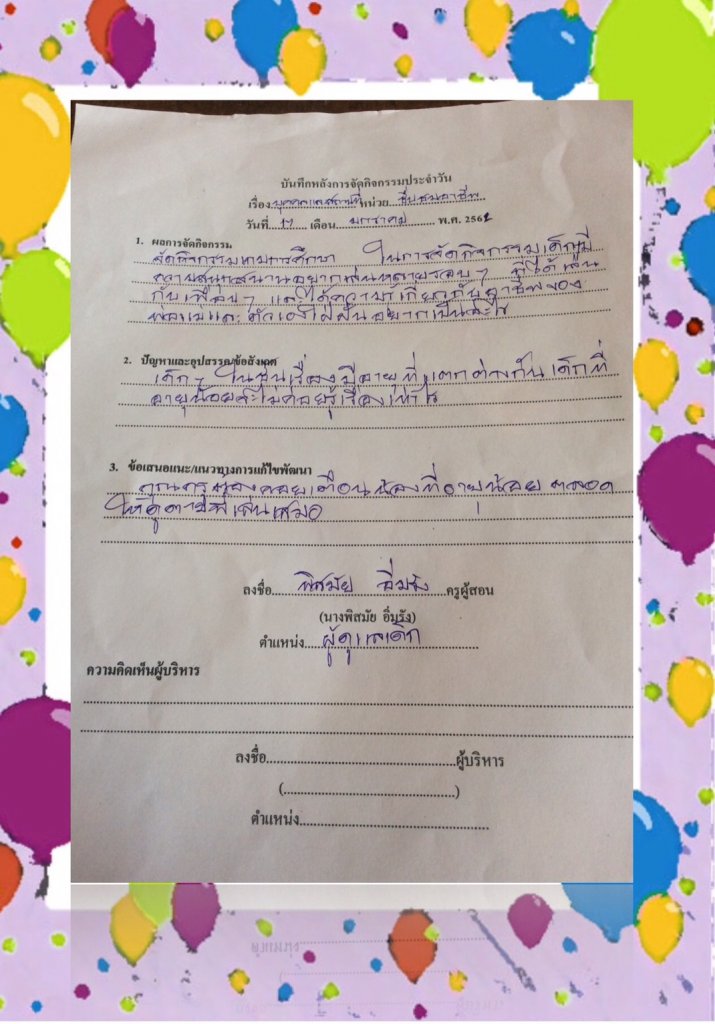 บันทึกหลังการจัดกิจกรรมประจำวัน
เรื่อง บุคคลและสถานที่ หน่วย ชื่นชมอาชีพ
วันที่ 17 เดือน มกราคม พ.ศ. 2562
1. ผลการจัดกิจกรรม
จัดกิจกรรมเกมการศึกษา ในการจัดกิจกรรมเด็กๆมี
ความสนุกสนานอยากเล่นหลายรอบๆ ที่ได้เล่น
กับเพื่อนๆ และได้ความรู้เกี่ยวกับอาชีพของ
พ่อแม่และตัวเองใฝ่ฝันอยากเป็นอะไร
2. ปัญหาและอุปสรรค/ข้อสังเกต
เด็กๆ ในชั้นเรื่องมีอายุที่แตกต่างกันเด็กที่
อายุน้อยจะไม่ค่อยรู้เรื่องเท่าไร
3. ข้อเสนอแนะ/แนวทางการแก้ไขพัฒนา
คุณครูต้องคอยเตือนน้องที่อายุน้อย ตลอด
ให้ดูตามพี่เล่นเสมอ
ลงชื่อ พิสมัย อิ่มรัง ครูผู้สอน
(นางพิสมัย อิ่มรัง)
ตำแหน่ง ผู้ดูแลเด็ก
ความคิดเห็นผู้บริหาร
ลงชื่อ ผู้บริหาร
( )
ตำแหน่ง